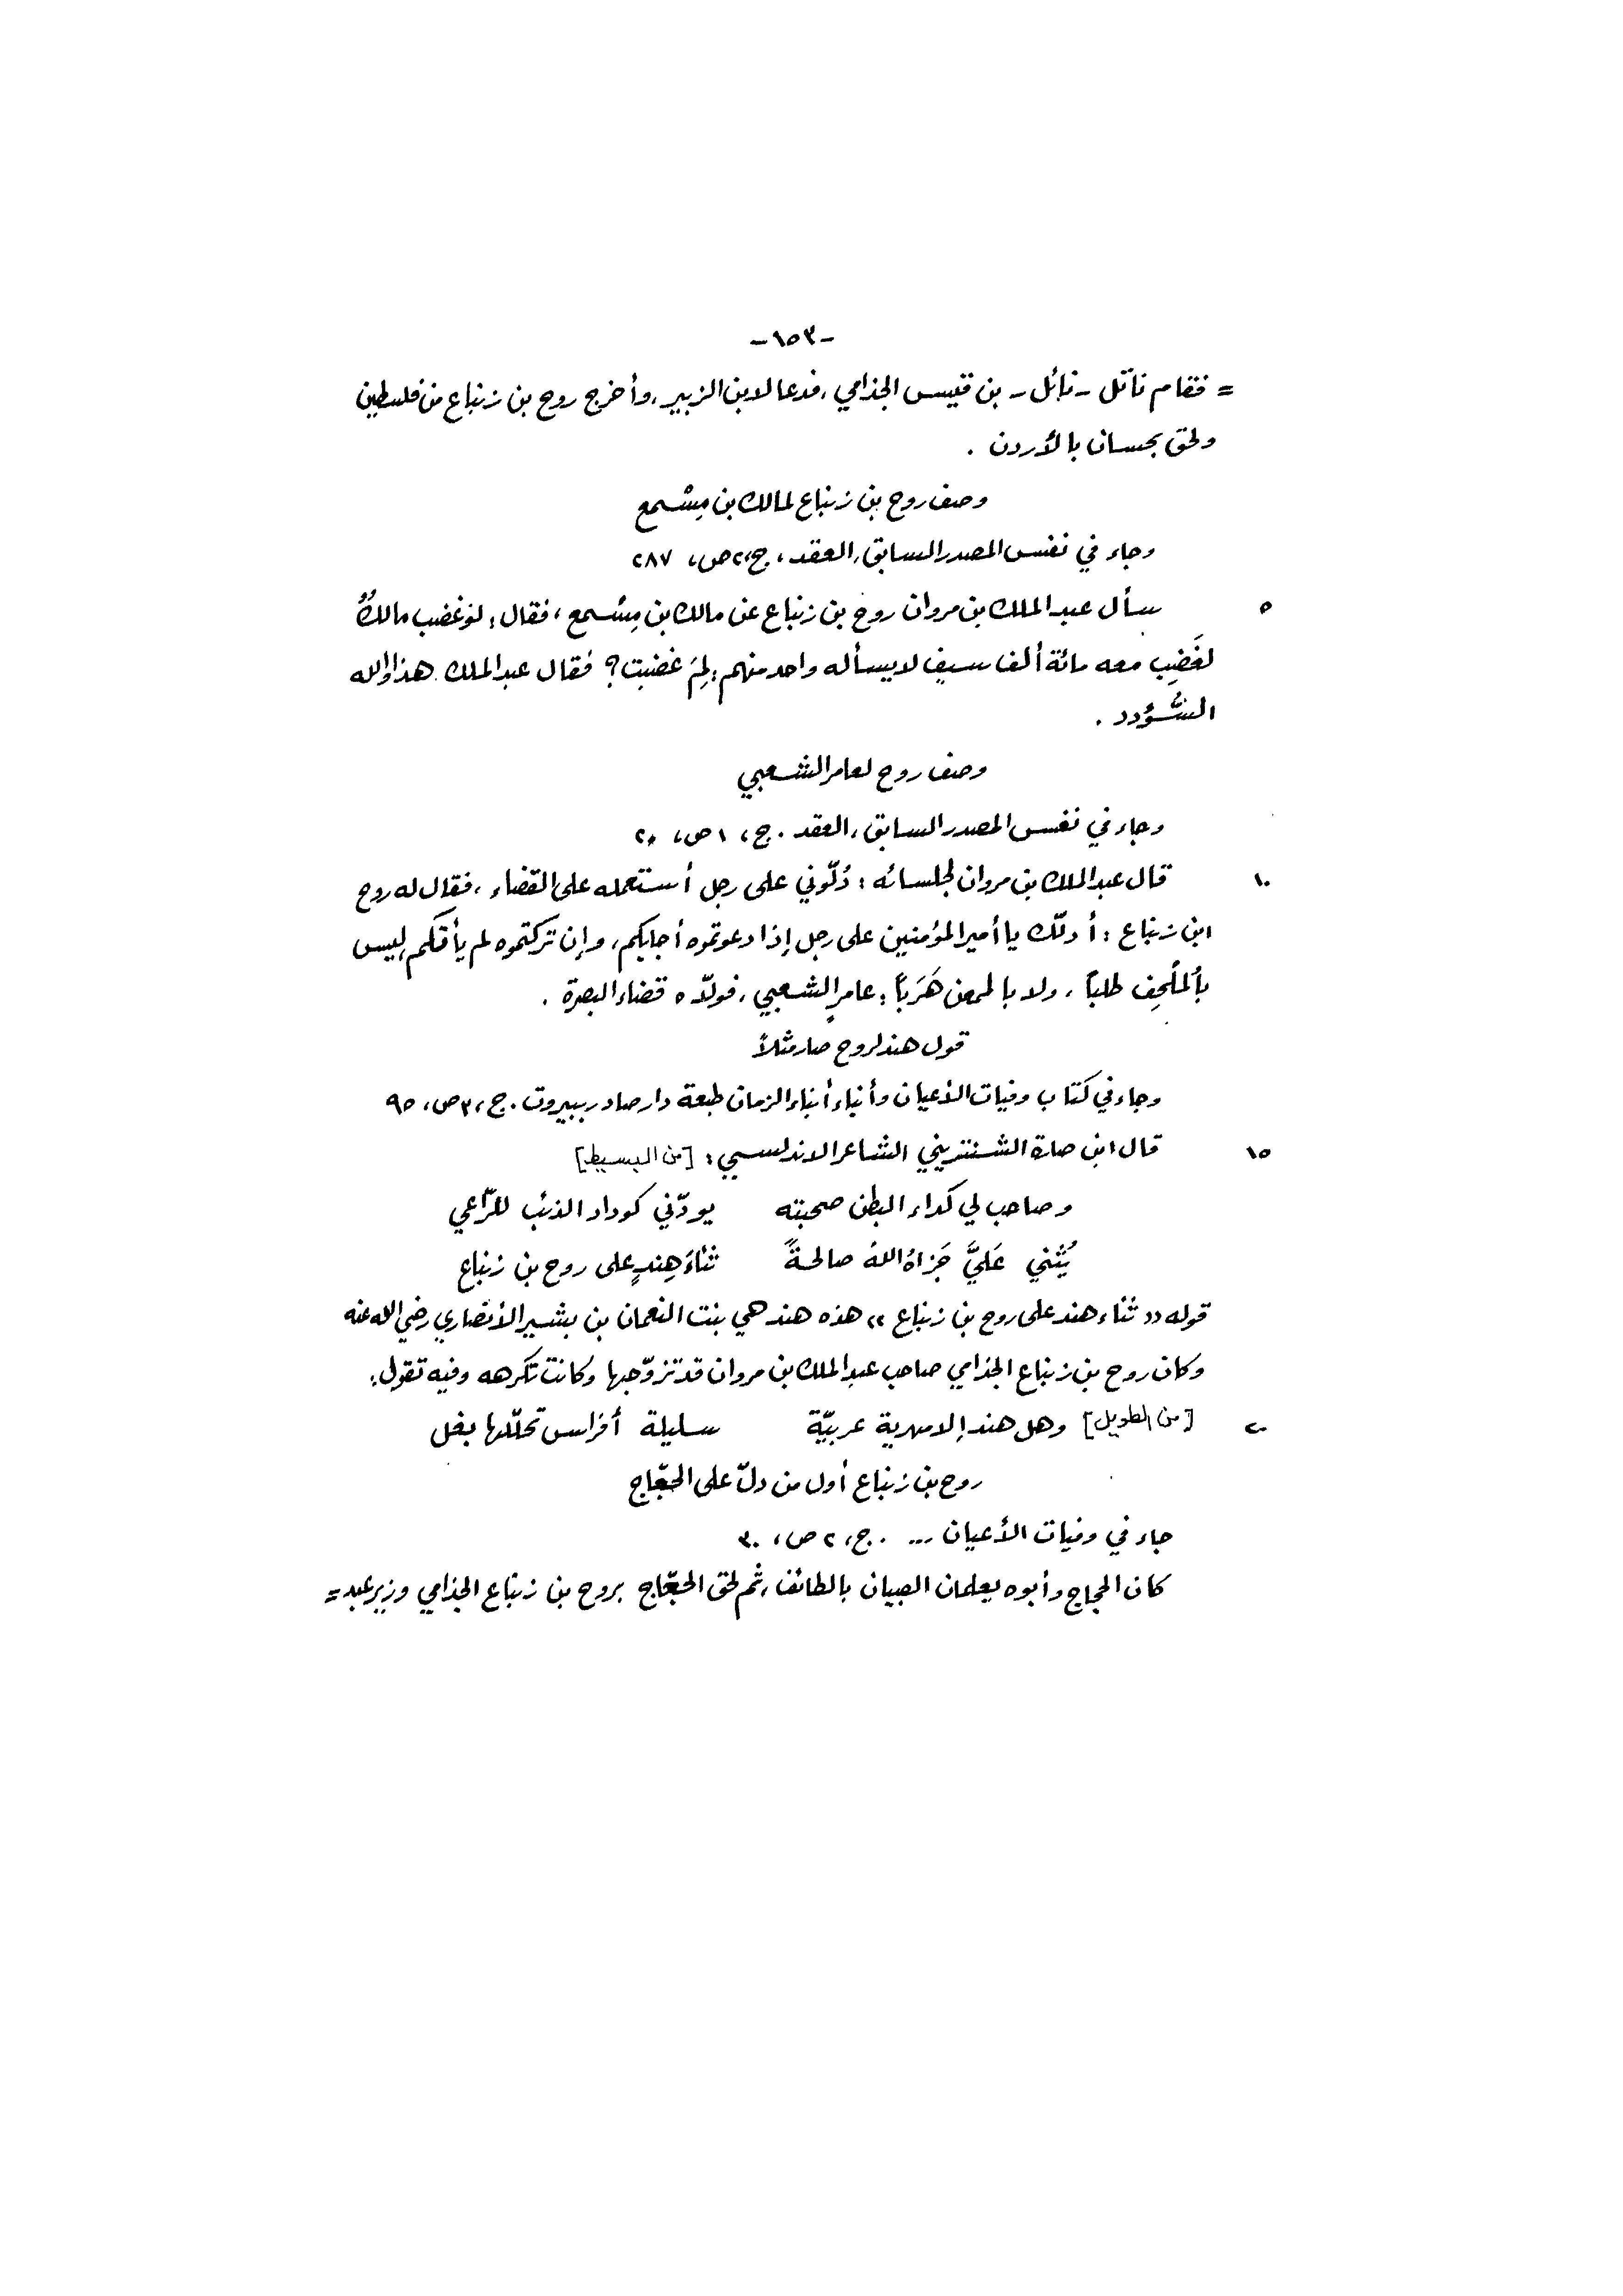 -١٥٣-
= فقام ناتل - نائل - بن قيس الجذامي ، فدعا لابن الزبير ، وأخرج روح بن زنباع من فلسطين
ولحق بحسان بالأردن .
وصف روح بن زنباع لمالك بن مِسْمع
وجاء في نفس المصدر السابق ، العقد ، ج ، ٢ ص ، ٢٨٧
٥ سأل عبد الملك بن مروان روح بن زنباع عن مالك بن مِسْمع ، فقال : لو غضب مالكٌ
لغَضِب معه مائة ألف سيفٍ لا يسأله واحد منهم : لِمَ غضبت ؟ فقال عبد الملك هذا والله
السُّؤدد .
وصف روح لعامر الشعبي
وجاء في نفس المصدر السابق ، العقد . ج ، ١ ص ، ٢٠
١٠ قال عبد الملك بن مروان لجلسائه : دُلّوني على رجل أستعمله على القضاء ، فقال له روح
ابن زنباع : أدلّك يا أمير المؤمنين على رجل إذا دعوتموه أجابكم ، وإن تركتموه لم يأتكم ليس
بالمُلْحِف طلباً ، ولا بالممعن هَرَباً : عامرٍ الشعبي ، فولاّه قضاء البصرة .
قول هند لروح صار مثلاً
وجاء في كتاب وفيات الأعيان وأنباء أبناء الزمان طبعة دار صادر ببيروت . ج ، ٣ ص ، ٩٥
١٥ قال ابن صارة الشنتريني الشاعر الاندلسي : [من البسيط]
وصاحب لي كداء البطن صحبته يودّني كوداد الذئب للرّاعي
يُثْني عَليَّ جَزاهُ اللهُ صالحةً ثناءَ هِندٍ على روح بن زنباع
قوله « ثناء هند على روح بن زنباع » هذه هند هي بنت النعمان بن بشير الأنصاري رضي الله عنه
وكان روح بن زنباع الجذامي صاحب عبد الملك بن مروان قد تزوّجها وكانت تكرهه وفيه تقول :
٢٠ [من الطويل] وهل هند إلا مهرية عربيّة سليلة أفراس تحلّلها بغل
روح بن زنباع أول من دلّ على الحجّاج
جاء في وفيات الأعيان ... . ج ، ٢ ص ، ٣٠
كان الحجاج وأبوه يعلمان الصبيان بالطائف ، ثم لحق الحجّاج بروح بن زنباع الجذامي وزير عبد =